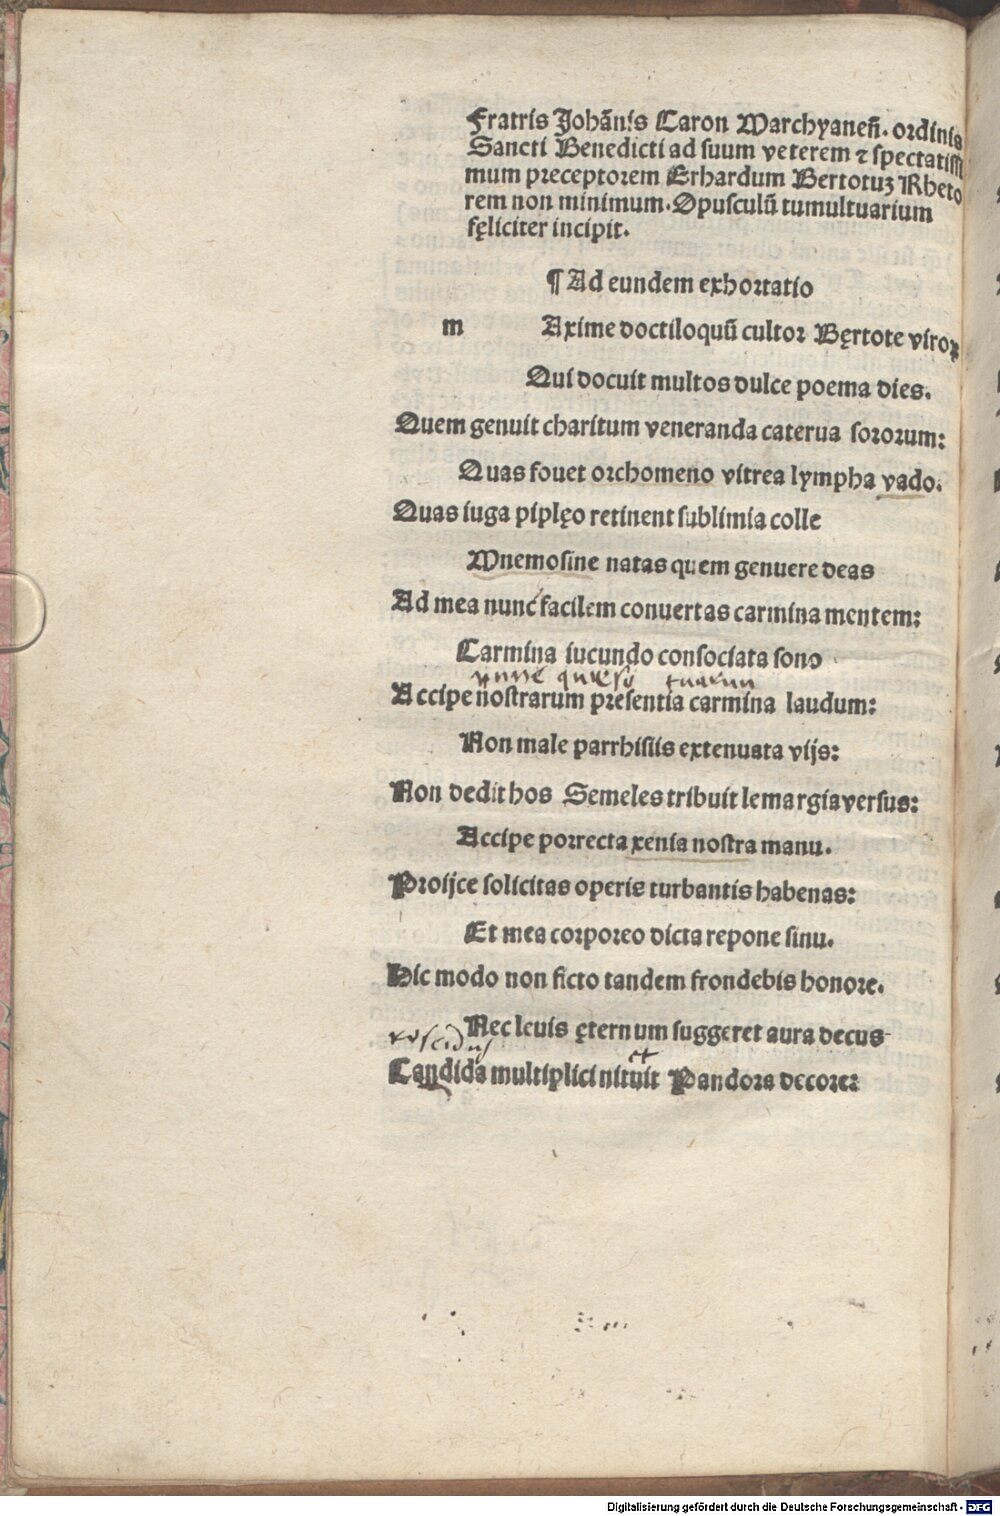 Fratris Johānis Caron Marchyaneñ. ordinis
Sancti Benedicti ad suum veterem ⁊ spectatissi
mum preceptorem Erhardum Bertotuꝫ Rheto
rem non minimum. Opusculū tumultuarium
fęliciter incipit.
¶ Ad eundem exhortatio
m Axime doctiloquū cultor Bęrtote viroꝝ
Qui docuit multos dulce poema dies.
Quem genuit charitum veneranda caterua sororum:
Quas fouet orchomeno vitrea lympha vado.
Quas iuga piplęo retinent sublimia colle
Mnemosine natas quem genuere deas
Ad mea nunc facilem conuertas carmina mentem:
Carmina iucundo consociata sono
nunc quęso tuarum
Accipe nostrarum presentia carmina laudum:
Non male parrhisiis extenuata vijs:
Non dedit hos Semeles tribuit lemargia versus:
Accipe porrecta xenia nostra manu.
Proijce solicitas operis turbantis habenas:
Et mea corporeo dicta repone sinu.
Hic modo non ficto tandem frondebis honore.
Nec leuis ęternum suggeret aura decus
roscidus et
Candida multiplici nituit Pandora decore:
Digitalisierung gefördert durch die Deutsche Forschungsgemeinschaft - DFG